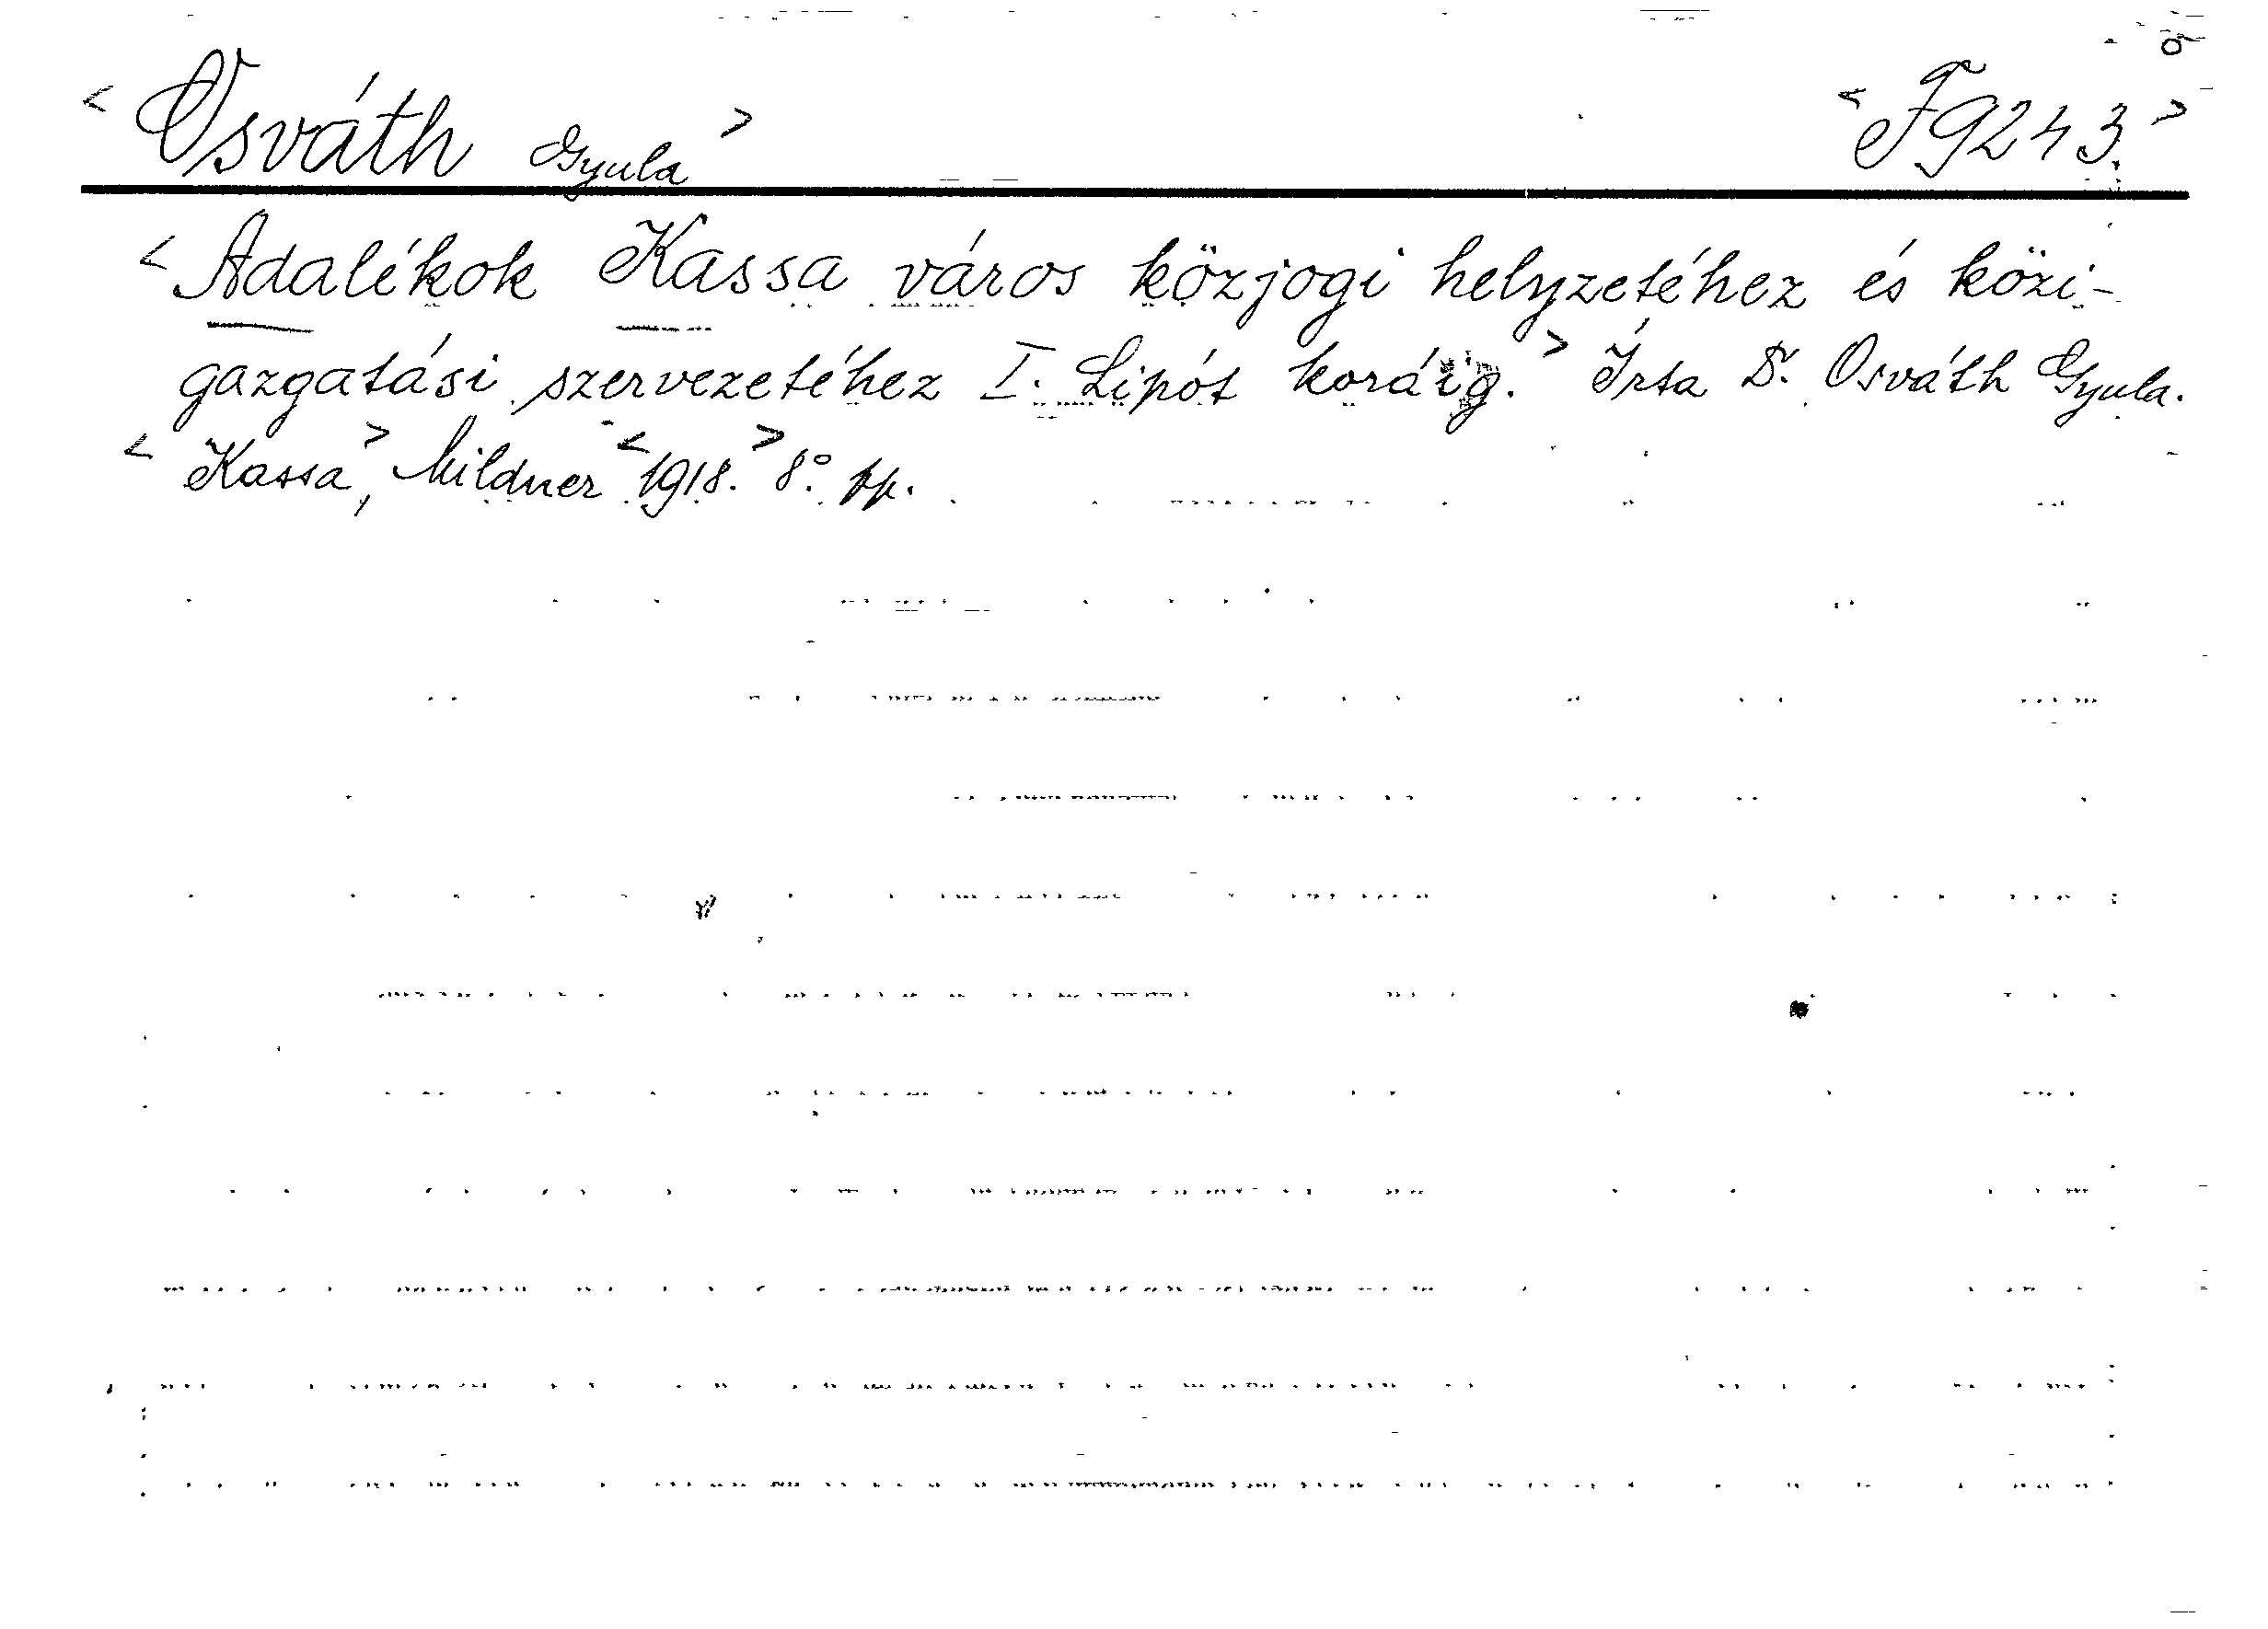 < Osváth Gyula > < F9243. >
< Adalékok Kassa város közjogi helyzetéhez és közi-
gazgatási szervezetéhez I. Lipót koráig. > Írta Dr. Osváth Gyula.
< Kassa >, Mildner < 1918. > 8° pp.